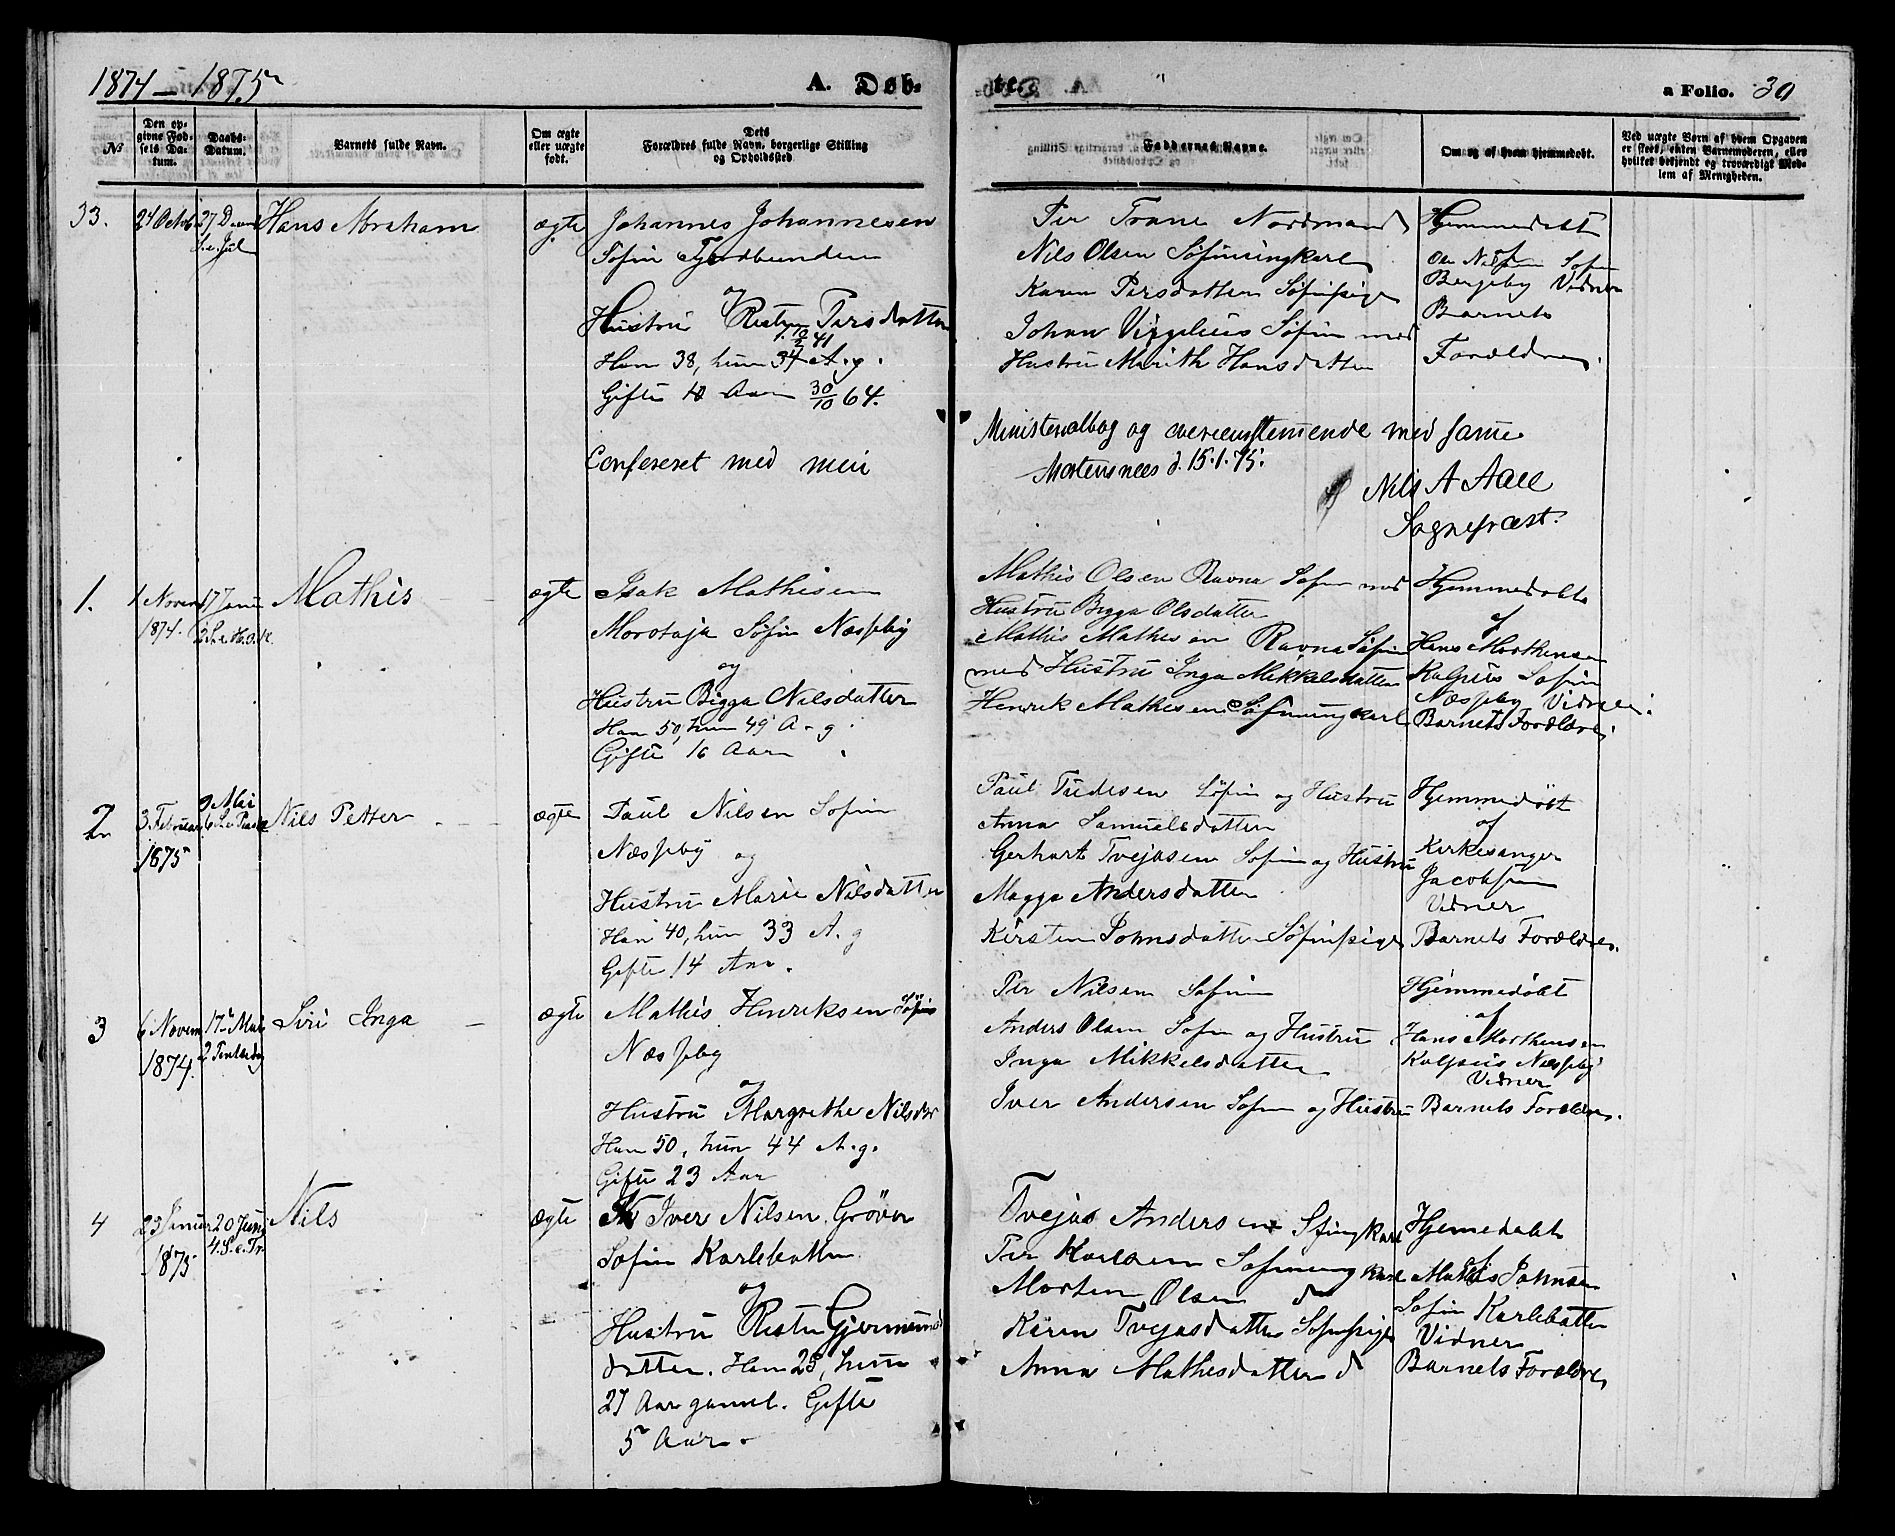 1874 - 1875
A. Døb-
te.
a Folio. 30
No
Den op-
givne Fød-
sels Da-
tum.
Daabs-
Datum.
Barnets fulde Navn.
Om ægte
eller uægte
født.
Dets
Forældres fulde Navn, borgerlige Stilling
og Opholdssted.
Faddernes Navne.
Om og af hvem hjemmedøbt.
Ved uægte Børn af hvem Opgaven
er skeet, enten Barnemoderen, eller
hvilket bekjendt og troværdigt Med-
lem af Menigheden.
33.
24 Octob
27 Decem
S. e. Jul
Hans Abraham
ægte
Johannes Johannesen
Søfin Fjordbunden
og
Hustru Resten Persdatter
Han 38, hun 34 A. g.
Gifte 10 Aar 30/10 64.
Per Trane Nordmand
Nils Olsen Søfinungkarl
Karen Persdatter Søfinpige
Johan Virgilius Søfin med
Hustru Marith Hansdatter
Hjemmedøbt
Bergeby Vidner
Barnets
Forældre.
Confereret med min
Ministerialbog og overensstemmende med samme
Mortensnes d. 15.1.75.
Nils A Aall
Sognepræst.
1.
1 Novem
1874.
17 Janu
2 S. e. H. 3 K.
Mathis
ægte
Isak Mathisen
Morotaja Søfin Næsseby
og
Hustru Bigga Nilsdatter
Han 50, hun 49 A. g.
Gifte 16 Aar
Mathis Olsen Ravna Søfin med
Hustru Bigga Olsdatter
Mathis Mathisen Ravna Søfin
med Hustru Inga Mikkelsdatter
Henrik Mathisen Søfinungkarl
Hjemmedøbt
af
Hans Morthensen
Kalpus Søfin
Næsseby Vidner
Barnets Forældre.
2
3 Februar
1875
9 Mai
Nils Petter
ægte
Paul Nilsen Søfin
Næsseby og
Hustru Marie Nilsdatter
Han 40, hun 33 A. g
Gifte 14 Aar.
Paul Tudesen Søfin og Hustru
Anna Samuelsdatter
Gerhart Tvejasen Søfin og Hustru
Magga Andersdatter
Kirsten Johnsdatter Søfinpige
Hjemmedøbt
af
Kirkesanger
Jacobsen
Vidner
Barnets Forældre.
3
6 Novem
1874.
17 Mai
2 Pintsedag
Siri Inga
ægte
Mathis Henriksen Søfin
Næsseby
og
Hustru Margrethe Nilsdtr
Han 50, hun 44 A. g.
Gifte 23 Aar
Per Nilsen Søfin
Anders Olsen Søfin og Hustru
Inga Mikkelsdatter
Iver Andersen Søfin og Hustru
Hjemmedøbt
af
Hans Morthensen
Kalpus Næsseby
Vidner
Barnets Forældre.
4
23 Januar
1875
20 Juni
4. S. e. Tr.
Nils
ægte
Iver Nilsen Grøver
Søfin Karlebotten
og
Hustru Resten Gjermunds
datter. Han 25, hun
27 Aar gamel. Gifte
5 Aar.
Tvejas Andersen Sfinungkarl
Per Karlsen Søfinungkarl
Morten Olsen do
Karen Tvejasdatter Søfinpige
Anna Mathisdatter d
Hjemedøbt
af
Mathis Johnsen
Søfin Karlebotten
Vidner
Barnets Forældre